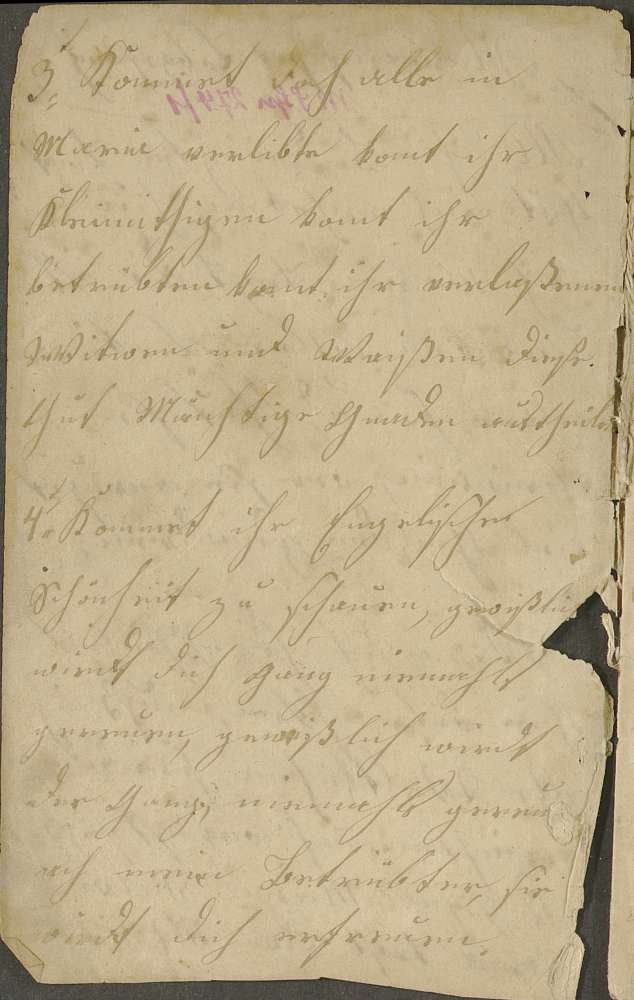 3, Kommet doch alle in
Maria verlibte komt ihr
Kleimüthigen komt ihr
betrübten komt ihr verlaßenen
Witwen und Waißen diese
thut Mächtige Gnaden austheilen
4, Kommet ihr Engelisches
Schönheit zu schauen, gewißlich
wirdt dich gang niemahls
gereuen, gewißlich wirdt
der Gang, niemahls gereu
ach mein Betrübter, sie
wirdt dich erfreuen.